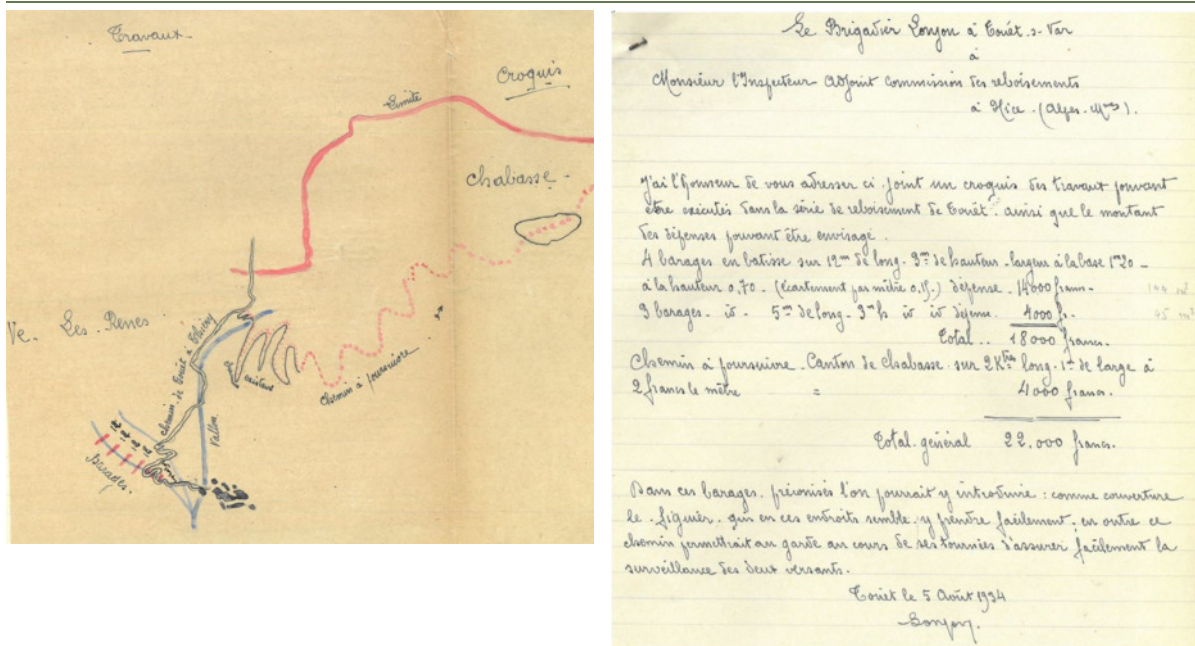 Travaux
Croquis
Limite
Chabasse -
Ve. Les Renes
Chemin de Touët à Thiéry
existant
Chemin à poursuivre
Vallon
Barages.
Le Brigadier Lonjon à Touët-s-Var
à
Monsieur l'Inspecteur Adjoint Commission des reboisements
à Nice. (Alpes-Mmes).
J'ai l'honneur de vous adresser ci-joint un croquis des travaux pouvant
être exécutés dans la série de reboisement de Touët. ainsi que le montant
des défenses pouvant être envisagé.
4 barages en batisse sur 12m de long. 3m de hauteur - largeur à la base 1m20 -
à la hauteur 0,70. (écartement par mètre 0,15.) défense. 14000 francs. 144 m3
3 barages. id - 5m de long. 3m h id id défense. 4000 fs. 45 m3
Total.. 18000 francs.
Chemin à poursuivre. Canton de Chabasse. sur 2 Ktres long. 1m de large à
2 francs le mètre = 4000 francs.
Total général 22.000 francs.
Dans ces barages. préconisés l'on pourrait y introduire : comme couverture
le figuier. qui en ces endroits semble y prendre facilement; en outre ce
chemin permettrait au garde au cours de ses tournées d'assurer facilement la
surveillance des deux versants.
Touët le 5 Août 1934
Lonjon.